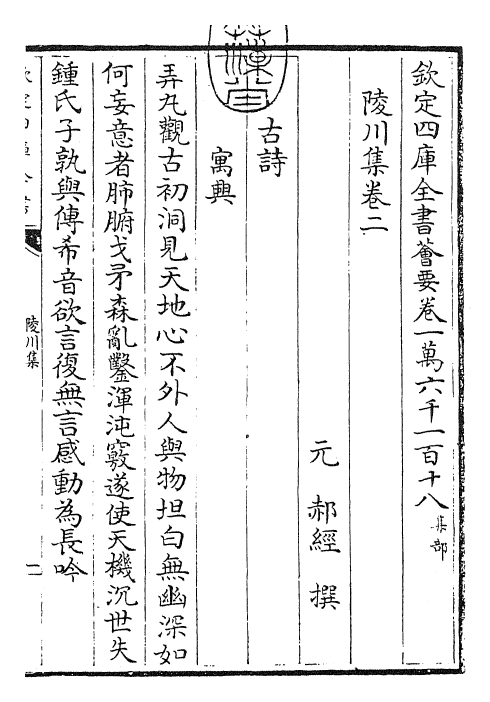 欽定四庫全書薈要卷一萬六千一百十八 集部
陵川集卷二
元 郝經 撰
古詩
寓興
弄丸觀古初洞見天地心不外人與物坦白無幽深如
何妄意者肺腑戈矛森亂鑿渾沌竅遂使天機沉世失
鍾氏子孰與傳希音欲言復無言感動為長吟
陵川集